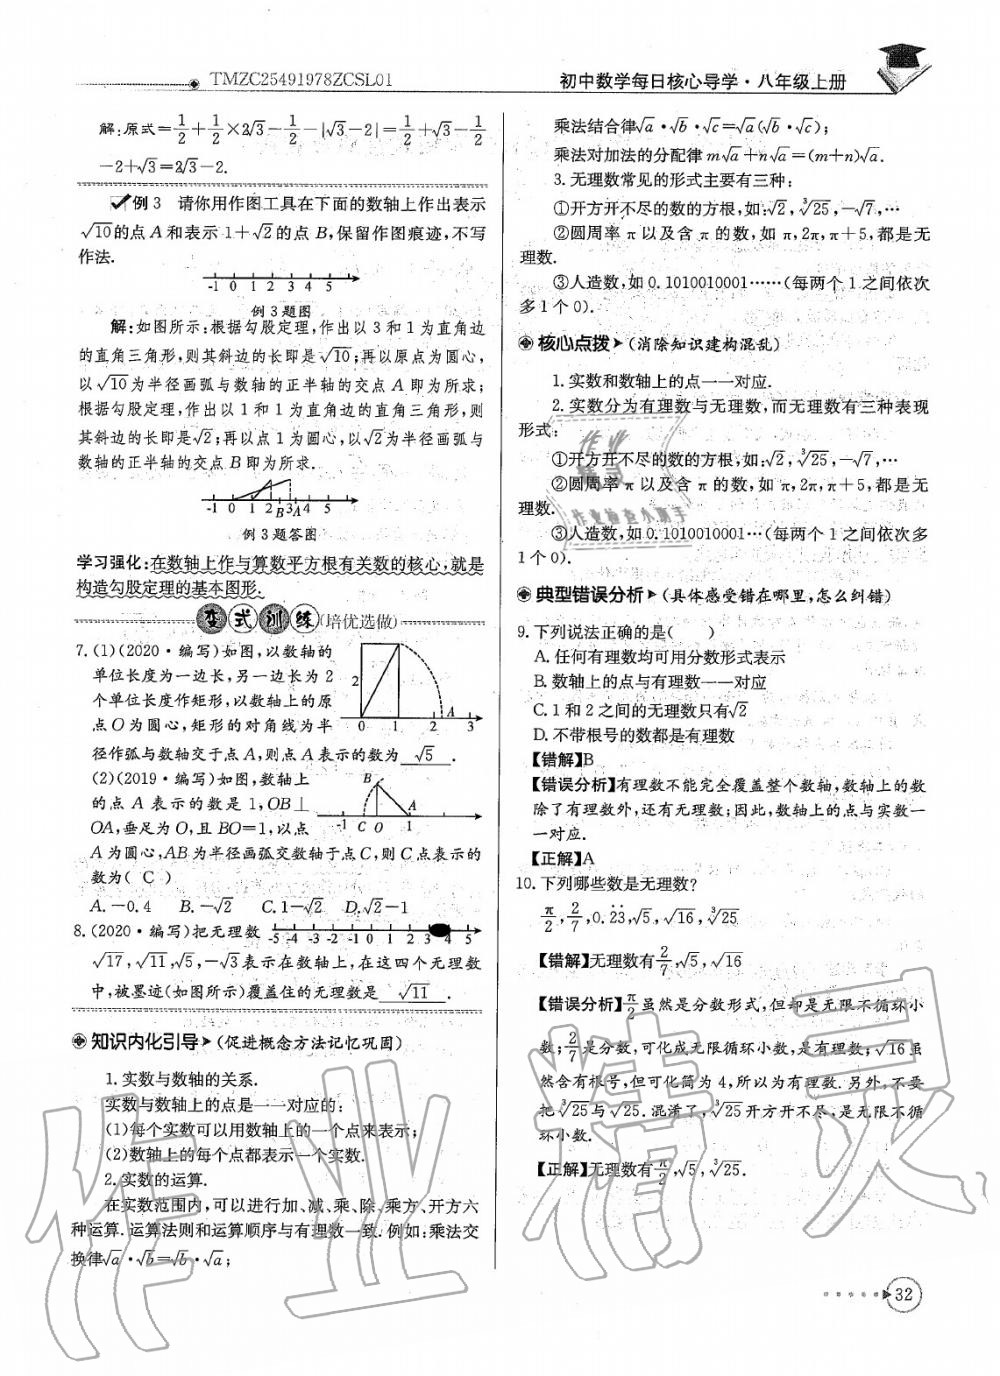 TMZC25491978ZCSL01
初中数学每日核心导学·八年级上册
解:原式=1/2+1/2×2√3-1/2-|√3-2|=1/2+√3-1/2
-2+√3=2√3-2.
例3 请你用作图工具在下面的数轴上作出表示
√10的点A和表示1+√2的点B,保留作图痕迹,不写
作法.
-1 0 1 2 3 4 5
例3题图
解:如图所示:根据勾股定理,作出以3和1为直角边
的直角三角形,则其斜边的长即是√10;再以原点为圆心,
以√10为半径画弧与数轴的正半轴的交点A即为所求;
根据勾股定理,作出以1和1为直角边的直角三角形,则
其斜边的长即是√2;再以点1为圆心,以√2为半径画弧与
数轴的正半轴的交点B即为所求.
-1 0 1 2B3A4 5
例3题答图
学习强化:在数轴上作与算数平方根有关数的核心,就是
构造勾股定理的基本图形.
变式训练(培优选做)
7.(1)(2020·编写)如图,以数轴的
单位长度为一边长,另一边长为2
个单位长度作矩形,以数轴上的原
点O为圆心,矩形的对角线为半
径作弧与数轴交于点A,则点A表示的数为 √5 .
2
A
0 1 2 3
(2)(2019·编写)如图,数轴上
的点A表示的数是1,OB⊥
OA,垂足为O,且BO=1,以点
A为圆心,AB为半径画弧交数轴于点C,则C点表示的
数为( C )
B
A
-1 C O 1
A.-0.4 B.-√2 C.1-√2 D.√2-1
8.(2020·编写)把无理数
-5 -4 -3 -2 -1 0 1 2 3 4 5
√17,√11,√5,-√3表示在数轴上,在这四个无理数
中,被墨迹(如图所示)覆盖住的无理数是 √11 .
知识内化引导(促进概念方法记忆巩固)
1.实数与数轴的关系.
实数与数轴上的点是一一对应的:
(1)每个实数可以用数轴上的一个点来表示;
(2)数轴上的每个点都表示一个实数.
2.实数的运算.
在实数范围内,可以进行加、减、乘、除、乘方、开方六
种运算.运算法则和运算顺序与有理数一致.例如:乘法交
换律√a·√b=√b·√a;
乘法结合律√a·√b·√c=√a(√b·√c);
乘法对加法的分配律m√a+n√a=(m+n)√a.
3.无理数常见的形式主要有三种:
①开方开不尽的数的方根,如:√2,∛25,-√7,…
②圆周率π以及含π的数,如π,2π,π+5,都是无
理数.
③人造数,如0.1010010001……(每两个1之间依次
多1个0).
核心点拨(消除知识建构混乱)
1.实数和数轴上的点一一对应.
2.实数分为有理数与无理数,而无理数有三种表现
形式:
①开方开不尽的数的方根,如:√2,∛25,-√7,…
②圆周率π以及含π的数,如π,2π,π+5,都是无
理数.
③人造数,如0.1010010001…(每两个1之间依次
多1个0).
典型错误分析(具体感受错在哪里,怎么纠错)
9.下列说法正确的是( )
A.任何有理数均可用分数形式表示
B.数轴上的点与有理数一一对应
C.1和2之间的无理数只有√2
D.不带根号的数都是有理数
【错解】B
【错误分析】有理数不能完全覆盖整个数轴,数轴上的数
除了有理数外,还有无理数;因此,数轴上的点与实数一
一对应.
【正解】A
10.下列哪些数是无理数?
π/2,2/7,0.2̇3̇,√5,√16,∛25
【错解】无理数有2/7,√5,√16
【错误分析】π/2虽然是分数形式,但却是无限不循环小
数;2/7是分数,可化成无限循环小数,是有理数;√16虽
然含有根号,但可化简为4,所以为有理数.另外,不要
把∛25与√25.混淆了,∛25开方开不尽,是无限不循
环小数.
【正解】无理数有π/2,√5,∛25.
32
作业精灵
作业检查小助手
作业精灵